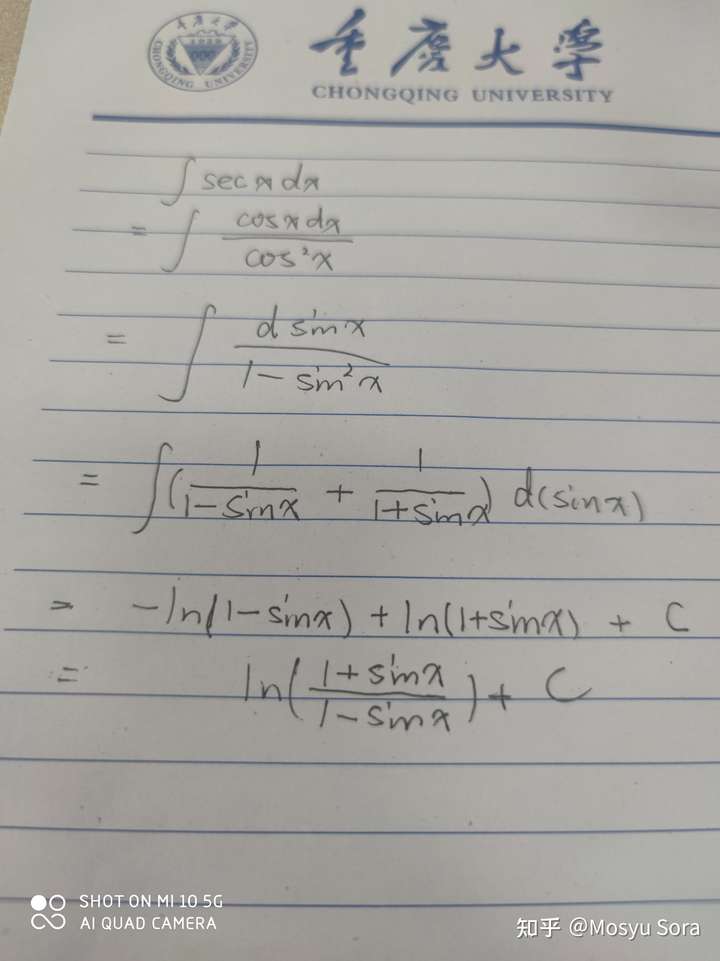 重庆大学
1929
CHONGQING UNIVERSITY
重庆大学
CHONGQING UNIVERSITY
∫ sec x dx
= ∫ cos x dx / cos²x
= ∫ d sin x / 1 - sin²x
= ∫( 1 / 1-sin x + 1 / 1+sin x ) d(sin x)
= -ln(1-sin x) + ln(1+sin x) + C
= ln( 1+sin x / 1-sin x ) + C
SHOT ON MI 10 5G
AI QUAD CAMERA
知乎 @Mosyu Sora